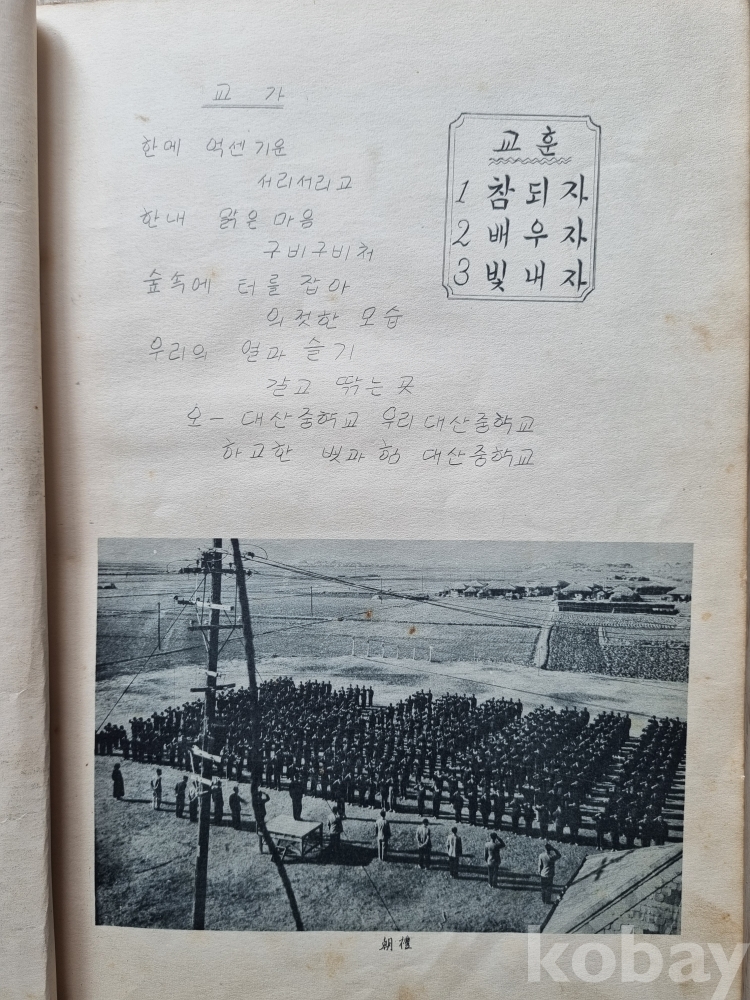 교 가
한메 억센 기운
서리서리고
한내 맑은 마음
구비구비쳐
숲속에 터를 잡아
의젓한 모습
우리의 얼과 슬기
갈고 딲는 곳
오ㅡ 대산중학교 우리 대산중학교
하고한 벗과 형 대산중학교
교 훈
1 참되자
2 배우자
3 빛내자
朝禮
kobay